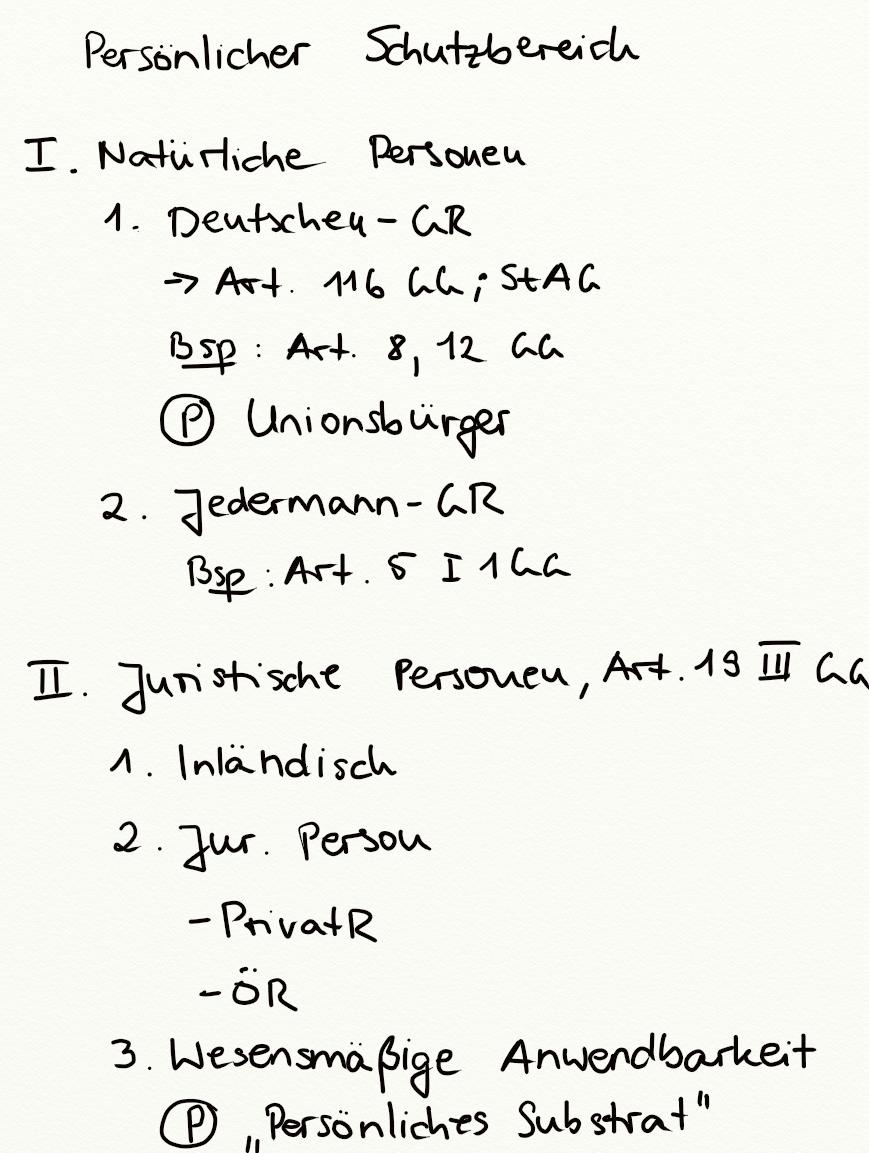 Persönlicher Schutzbereich
I. Natürliche Personen
1. Deutschen-GR
→ Art. 116 GG; StAG
Bsp: Art. 8, 12 GG
Ⓟ Unionsbürger
2. Jedermann-GR
Bsp: Art. 5 I 1 GG
II. Juristische Personen, Art. 19 III GG
1. Inländisch
2. Jur. Person
- PrivatR
- ÖR
3. Wesensmäßige Anwendbarkeit
Ⓟ „Persönliches Substrat"